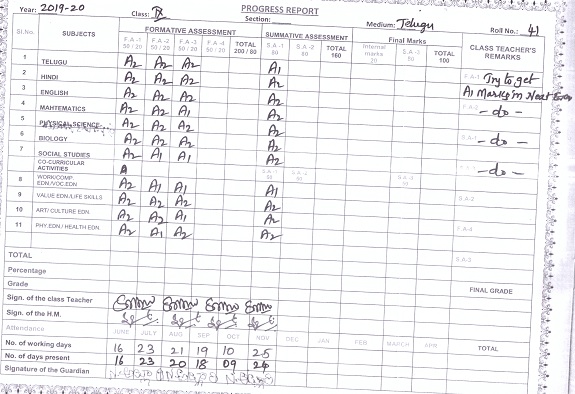 PROGRESS REPORT
Year: 2019-20 Class: IX Section: Medium: Telugu Roll No.: 41
Sl.No. SUBJECTS FORMATIVE ASSESSMENT SUMMATIVE ASSESSMENT Final Marks CLASS TEACHER'S REMARKS
F.A-1 50 / 20 F.A-2 50 / 20 F.A-3 50 / 20 F.A-4 50 / 20 TOTAL 200 / 80 S.A-1 80 S.A-2 80 TOTAL 160 Internal marks 20 S.A-3 80 TOTAL 100
1 TELUGU A2 A2 A2 A1 F.A-1 Try to get
2 HINDI A2 A2 A2 A2 A1 Marks in Next
3 ENGLISH A2 A2 A2 A2 F.A-2 - do -
4 MAHTEMATICS A2 A2 A1 A2
5 PHYSICAL SCIENCE A2 A2 A2 A2 S.A-1 - do -
6 BIOLOGY A2 A2 A2 A2
7 SOCIAL STUDIES A2 A1 A1 A2 - do -
CO-CURRICULAR ACTIVITIES A S.A-1 S.A-2 S.A-3
8 WORK/COMP. EDN./VOC.EDN. A2 A1 A1 A1 S.A-2
9 VALUE EDN./LIFE SKILLS A2 A2 A1 A2
10 ART/ CULTURE EDN. A2 A2 A1 A2 F.A-4
11 PHY.EDN / HEALTH EDN. A2 A1 A2 A2
TOTAL S.A-3
Percentage
Grade FINAL GRADE
Sign. of the class Teacher
Sign. of the H.M.
Attendance JUNE JULY AUG SEP OCT NOV DEC JAN FEB MARCH APR TOTAL
No. of working days 16 23 21 19 10 25
No. of days present 16 23 20 18 09 24
Signature of the Guardian